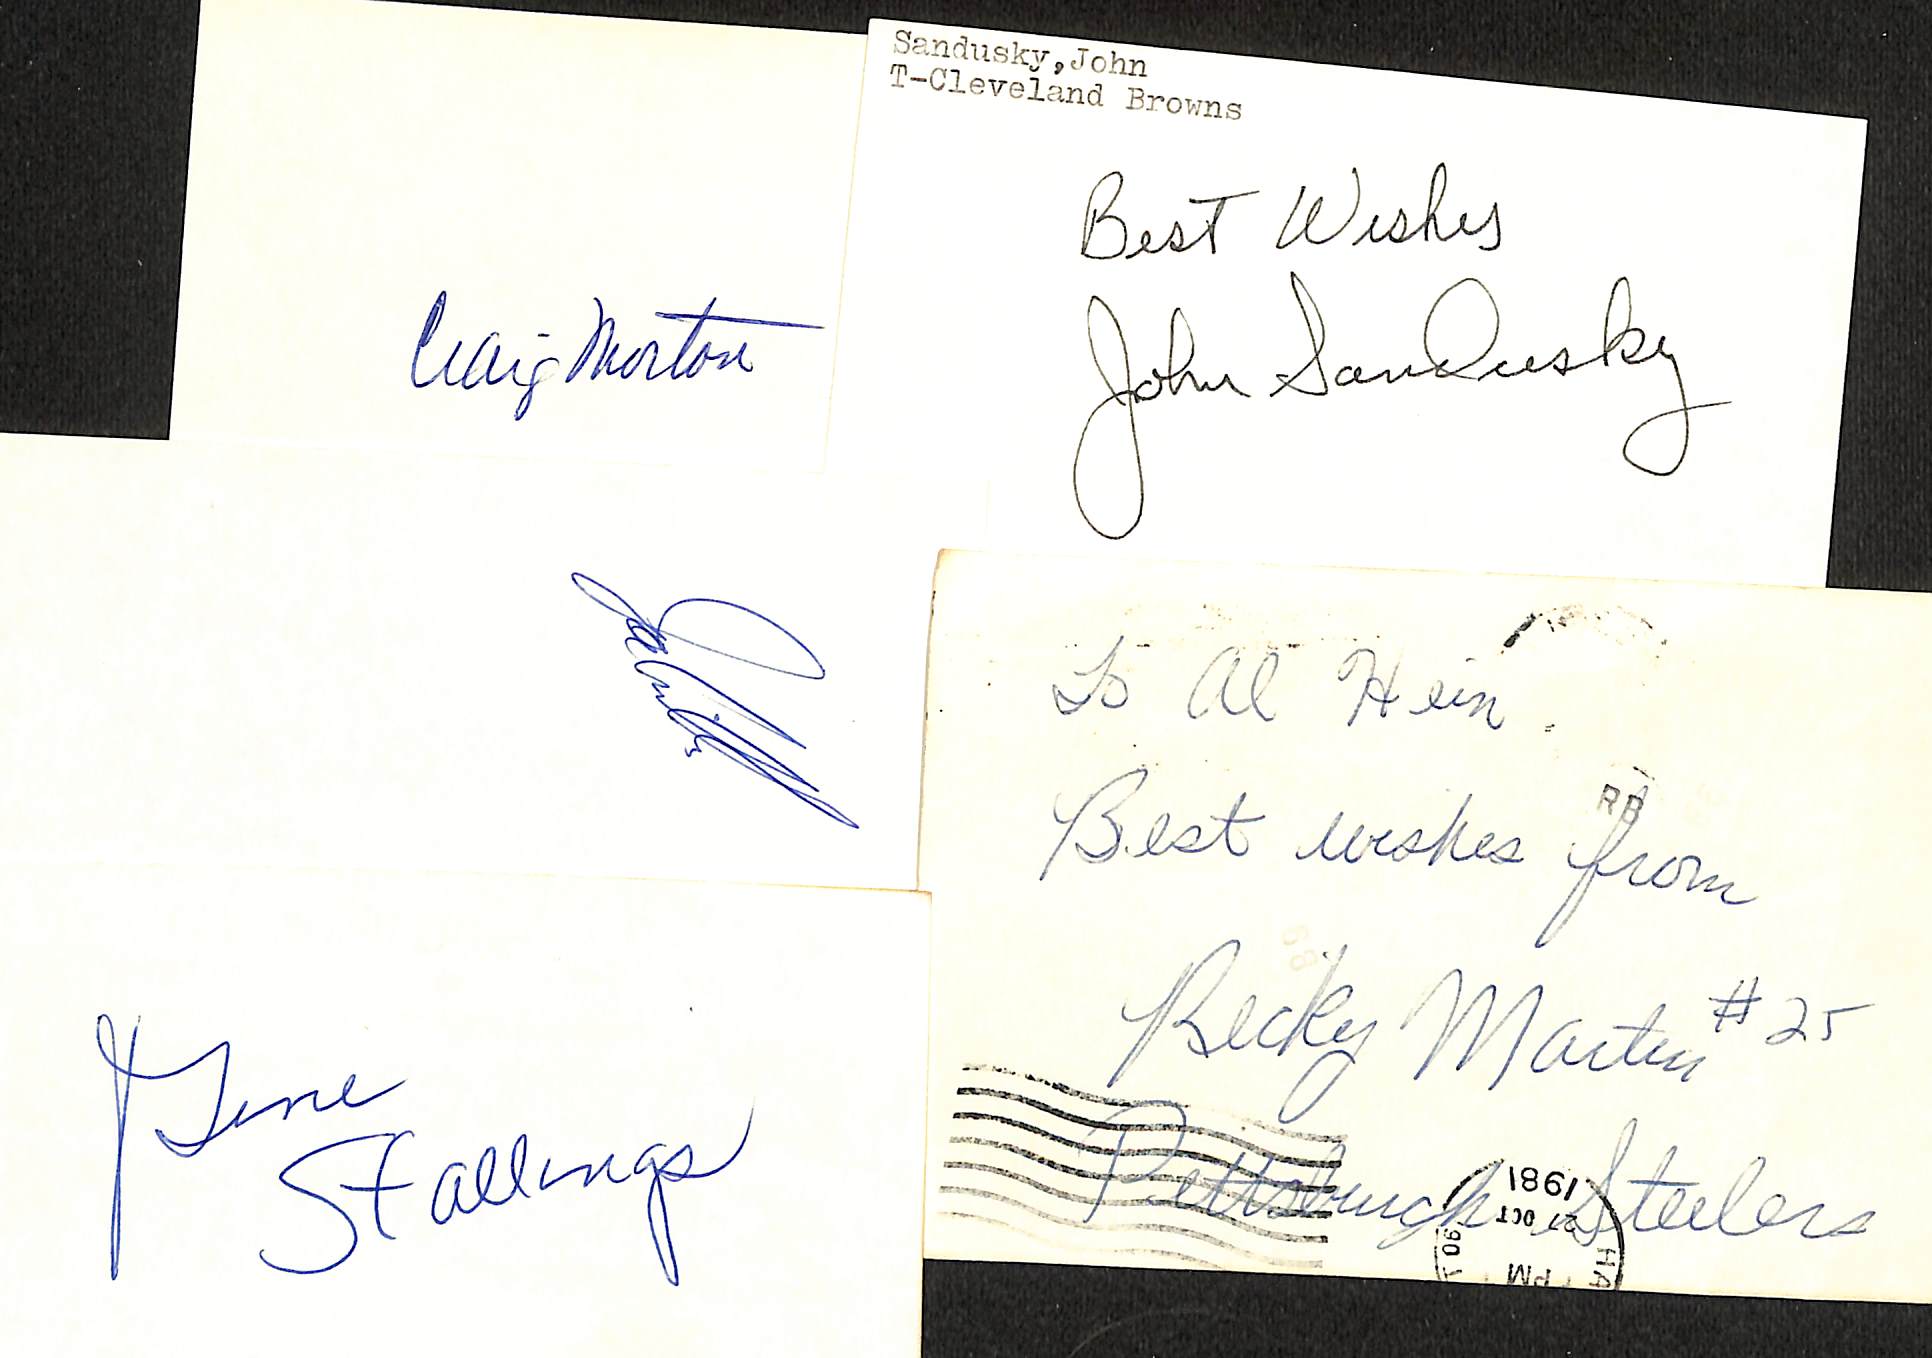 Craig Morton
Sandusky,John
T-Cleveland Browns
Best Wishes
John Sandusky
Gene
Stallings
To Al Hein
Best wishes from
Becky Martin #25
Pittsburgh Steelers
RB
1981
27 OCT
PM